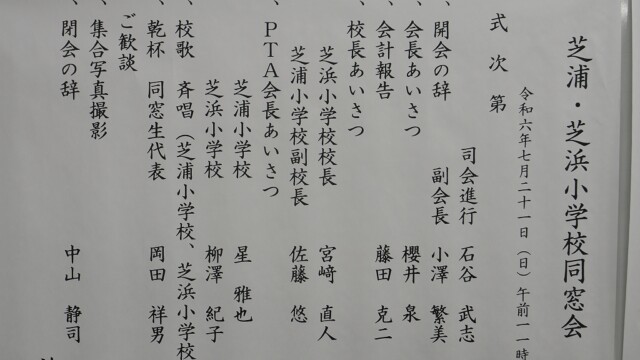 芝浦・芝浜小学校同窓会
令和六年七月二十一日（日）午前一一時
式次第
司会進行 石谷 武志
、開会の辞 副会長 小澤 繁美
、会長あいさつ 櫻井 泉
、会計報告 藤田 克二
、校長あいさつ
芝浜小学校校長 宮﨑 直人
芝浦小学校副校長 佐藤 悠
、PTA会長あいさつ
芝浦小学校 星 雅也
芝浜小学校 柳澤 紀子
、校歌 斉唱（芝浦小学校、芝浜小学校
、乾杯 同窓生代表 岡田 祥男
ご歓談
、集合写真撮影
、閉会の辞 中山 静司